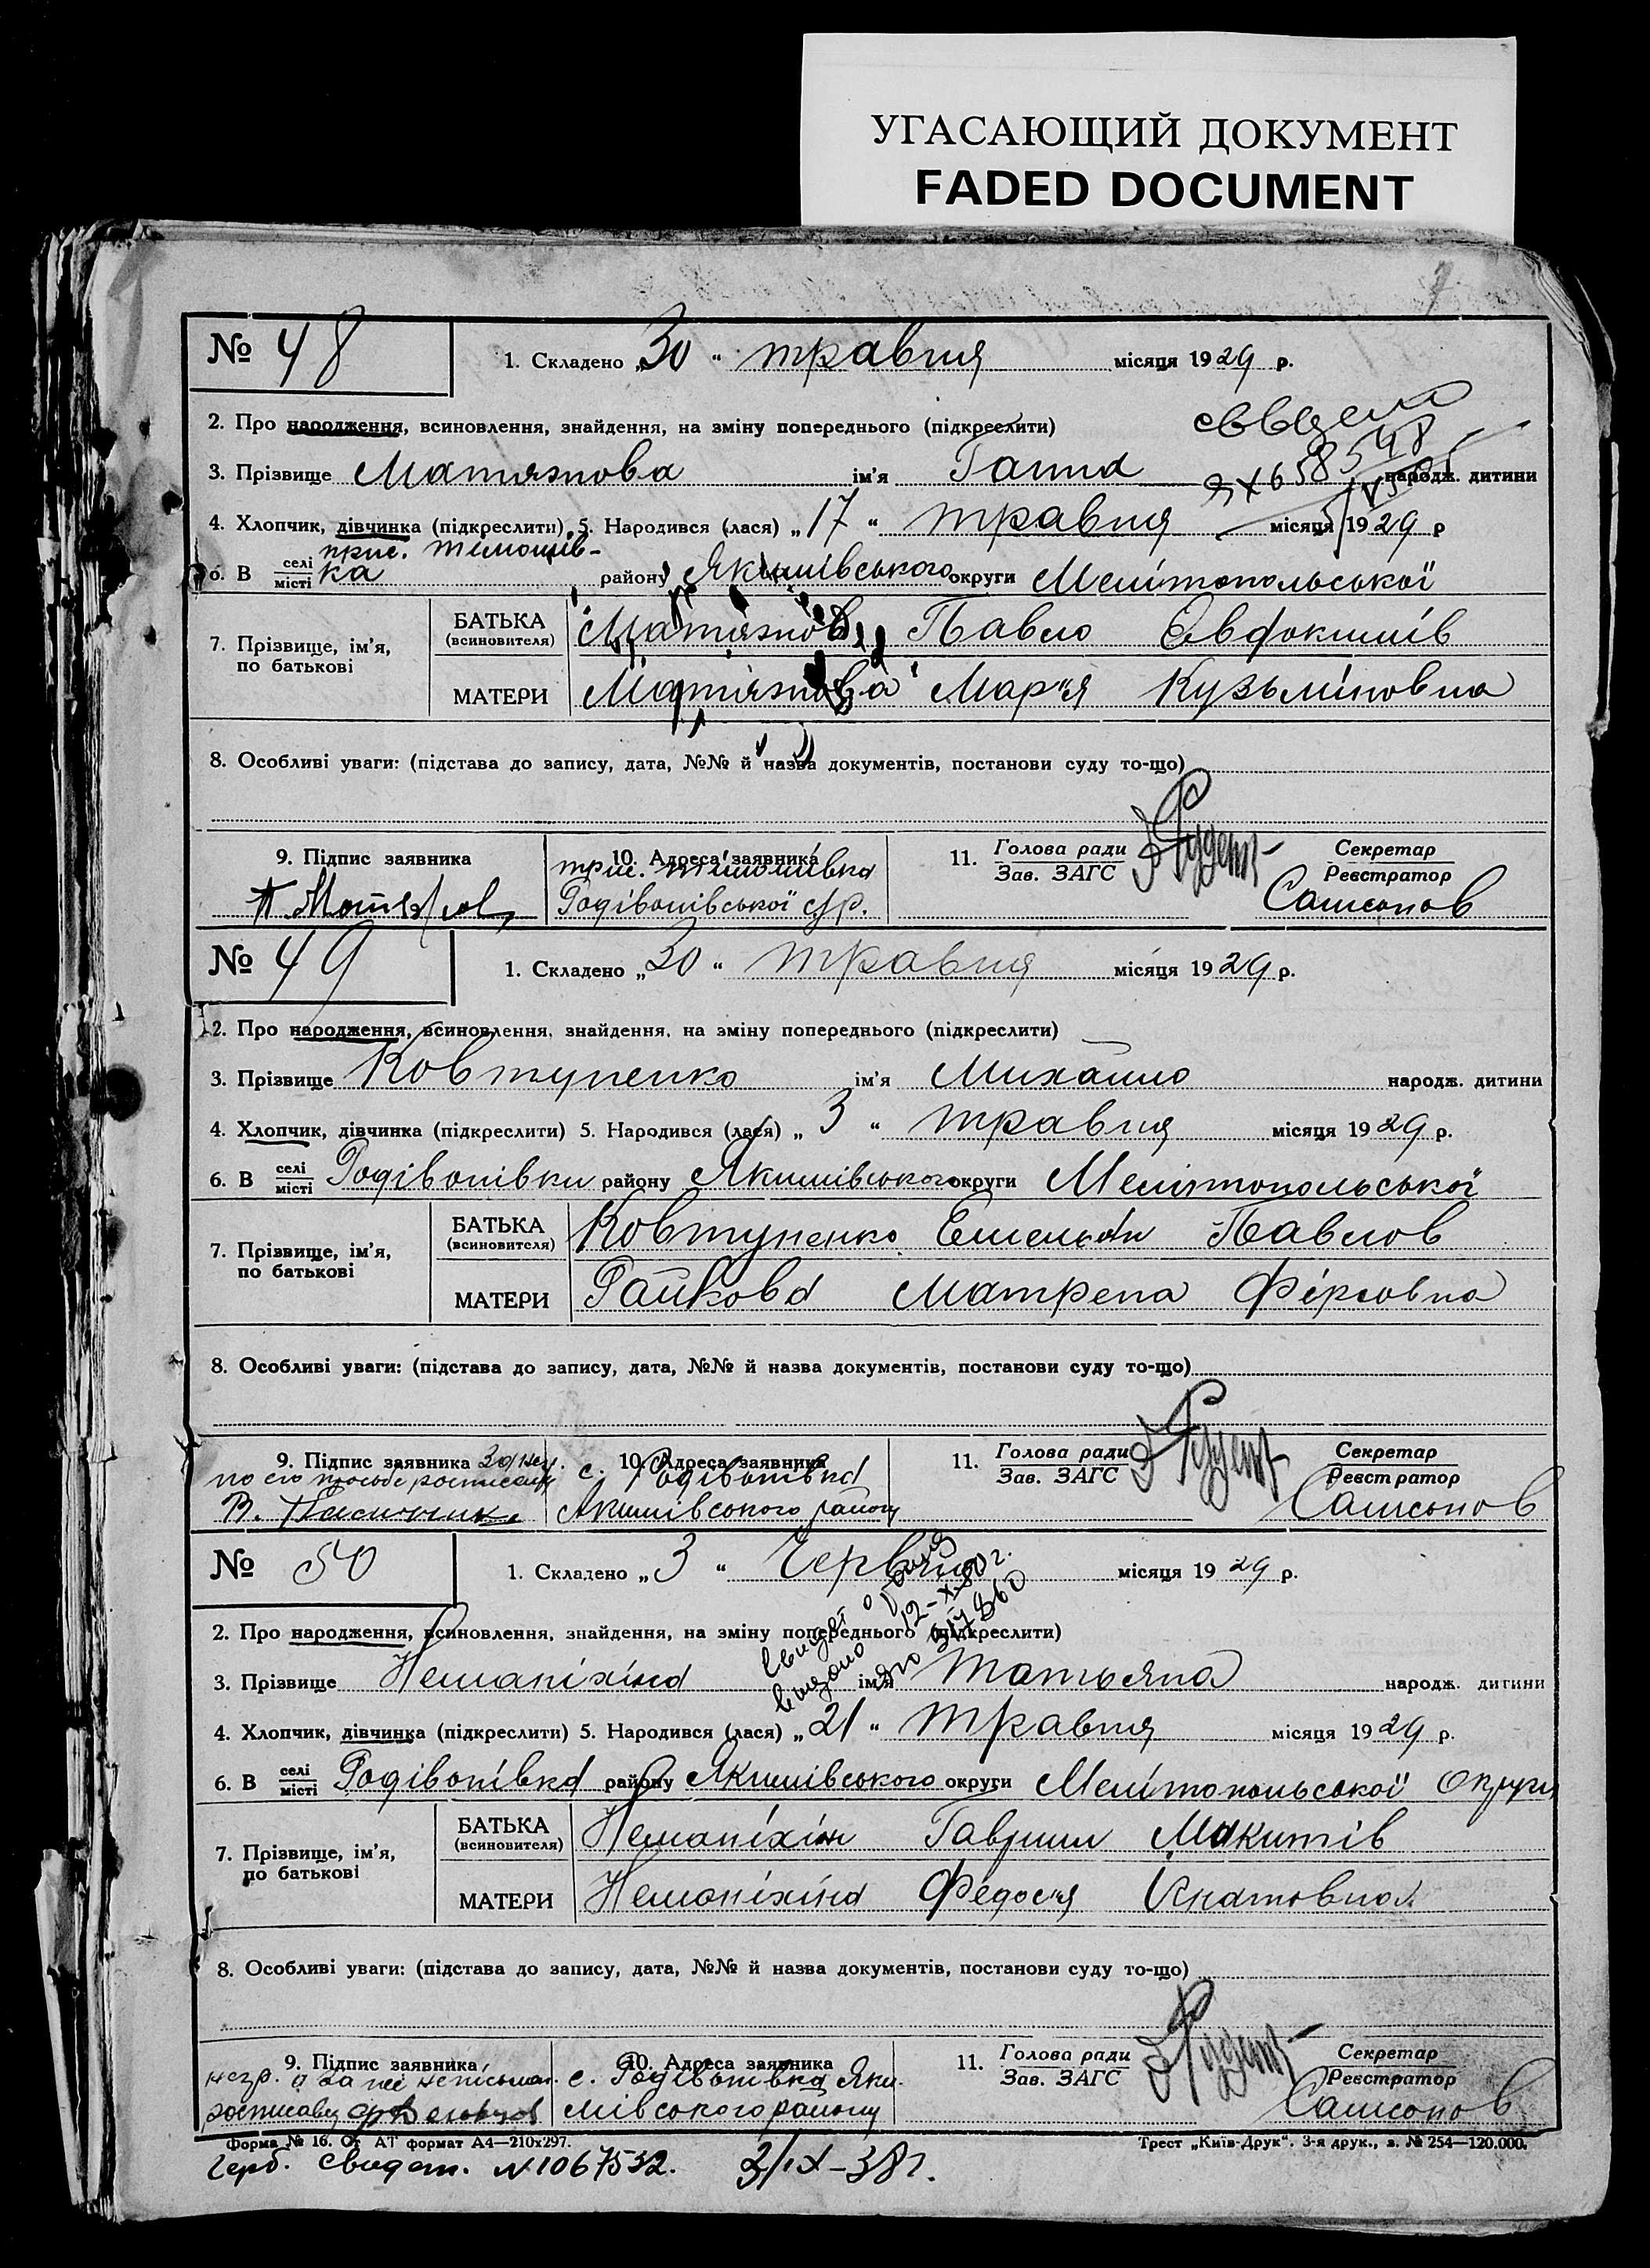 УГАСАЮЩИЙ ДОКУМЕНТ
FADED DOCUMENT
№ 48
1. Складено „30“ травня місяця 1929 р.
2. Про народження, всиновлення, знайдення, на зміну попереднього (підкреслити)
3. Прізвище Матязнова ім'я Ганна народж. дитини
4. Хлопчик, дівчинка (підкреслити) 5. Народився (лася) „17“ травня місяця 1929 р
6. В селі місті прис. Тімошів-
ка району Якимівського округи Мелітопольської
7. Прізвище, ім'я, по батькові
БАТЬКА (всиновителя) Матязнов Павло Овдокимів
МАТЕРИ Матязнова Мар'я Кузьмїновна
8. Особливі уваги: (підстава до запису, дата, №№ й назва документів, постанови суду то-що)
9. Підпис заявника
10. Адреса заявника
прис. Тімошівка
Родівонівської с/р.
11. Голова ради
Зав. ЗАГС
Секретар
Реєстратор
Самсонов
№ 49
1. Складено „30“ травня місяця 1929 р.
2. Про народження, всиновлення, знайдення, на зміну попереднього (підкреслити)
3. Прізвище Ковтуненко ім'я Михайло народж. дитини
4. Хлопчик, дівчинка (підкреслити) 5. Народився (лася) „3“ травня місяця 1929 р.
6. В селі місті Родівонівки району Якимівського округи Мелітопольської
7. Прізвище, ім'я, по батькові
БАТЬКА (всиновителя) Ковтуненко Емельян Павлов
МАТЕРИ Райкова Матрена Фірсовна
8. Особливі уваги: (підстава до запису, дата, №№ й назва документів, постанови суду то-що)
9. Підпис заявника
по его просьбе
В.
10. Адреса заявника
с. Родівонівка
Якимівського району
11. Голова ради
Зав. ЗАГС
Секретар
Реєстратор
Самсонов
№ 50
1. Складено „3“ Червня місяця 1929 р.
12-X-80г.
2. Про народження, всиновлення, знайдення, на зміну попереднього (підкреслити)
3. Прізвище Немапіхіна ім'я Татьяна народж. дитини
4. Хлопчик, дівчинка (підкреслити) 5. Народився (лася) „21“ травня місяця 1929 р.
6. В селі місті Родівонівка району Якимівського округи Мелітопольської Округи
7. Прізвище, ім'я, по батькові
БАТЬКА (всиновителя) Немапіхін Гаврил Микитів
МАТЕРИ Немапіхіна Федос'я Ігнатовна
8. Особливі уваги: (підстава до запису, дата, №№ й назва документів, постанови суду то-що)
9. Підпис заявника
10. Адреса заявника
с. Родівонівка Яки-
мівського району
11. Голова ради
Зав. ЗАГС
Секретар
Реєстратор
Самсонов
Форма № 16. От АТ формат А4—210х297.
Трест „Київ-Друк“. 3-я друк., з. № 254—120.000.
Герб. свидет. N1067532. 3/IX-38г.